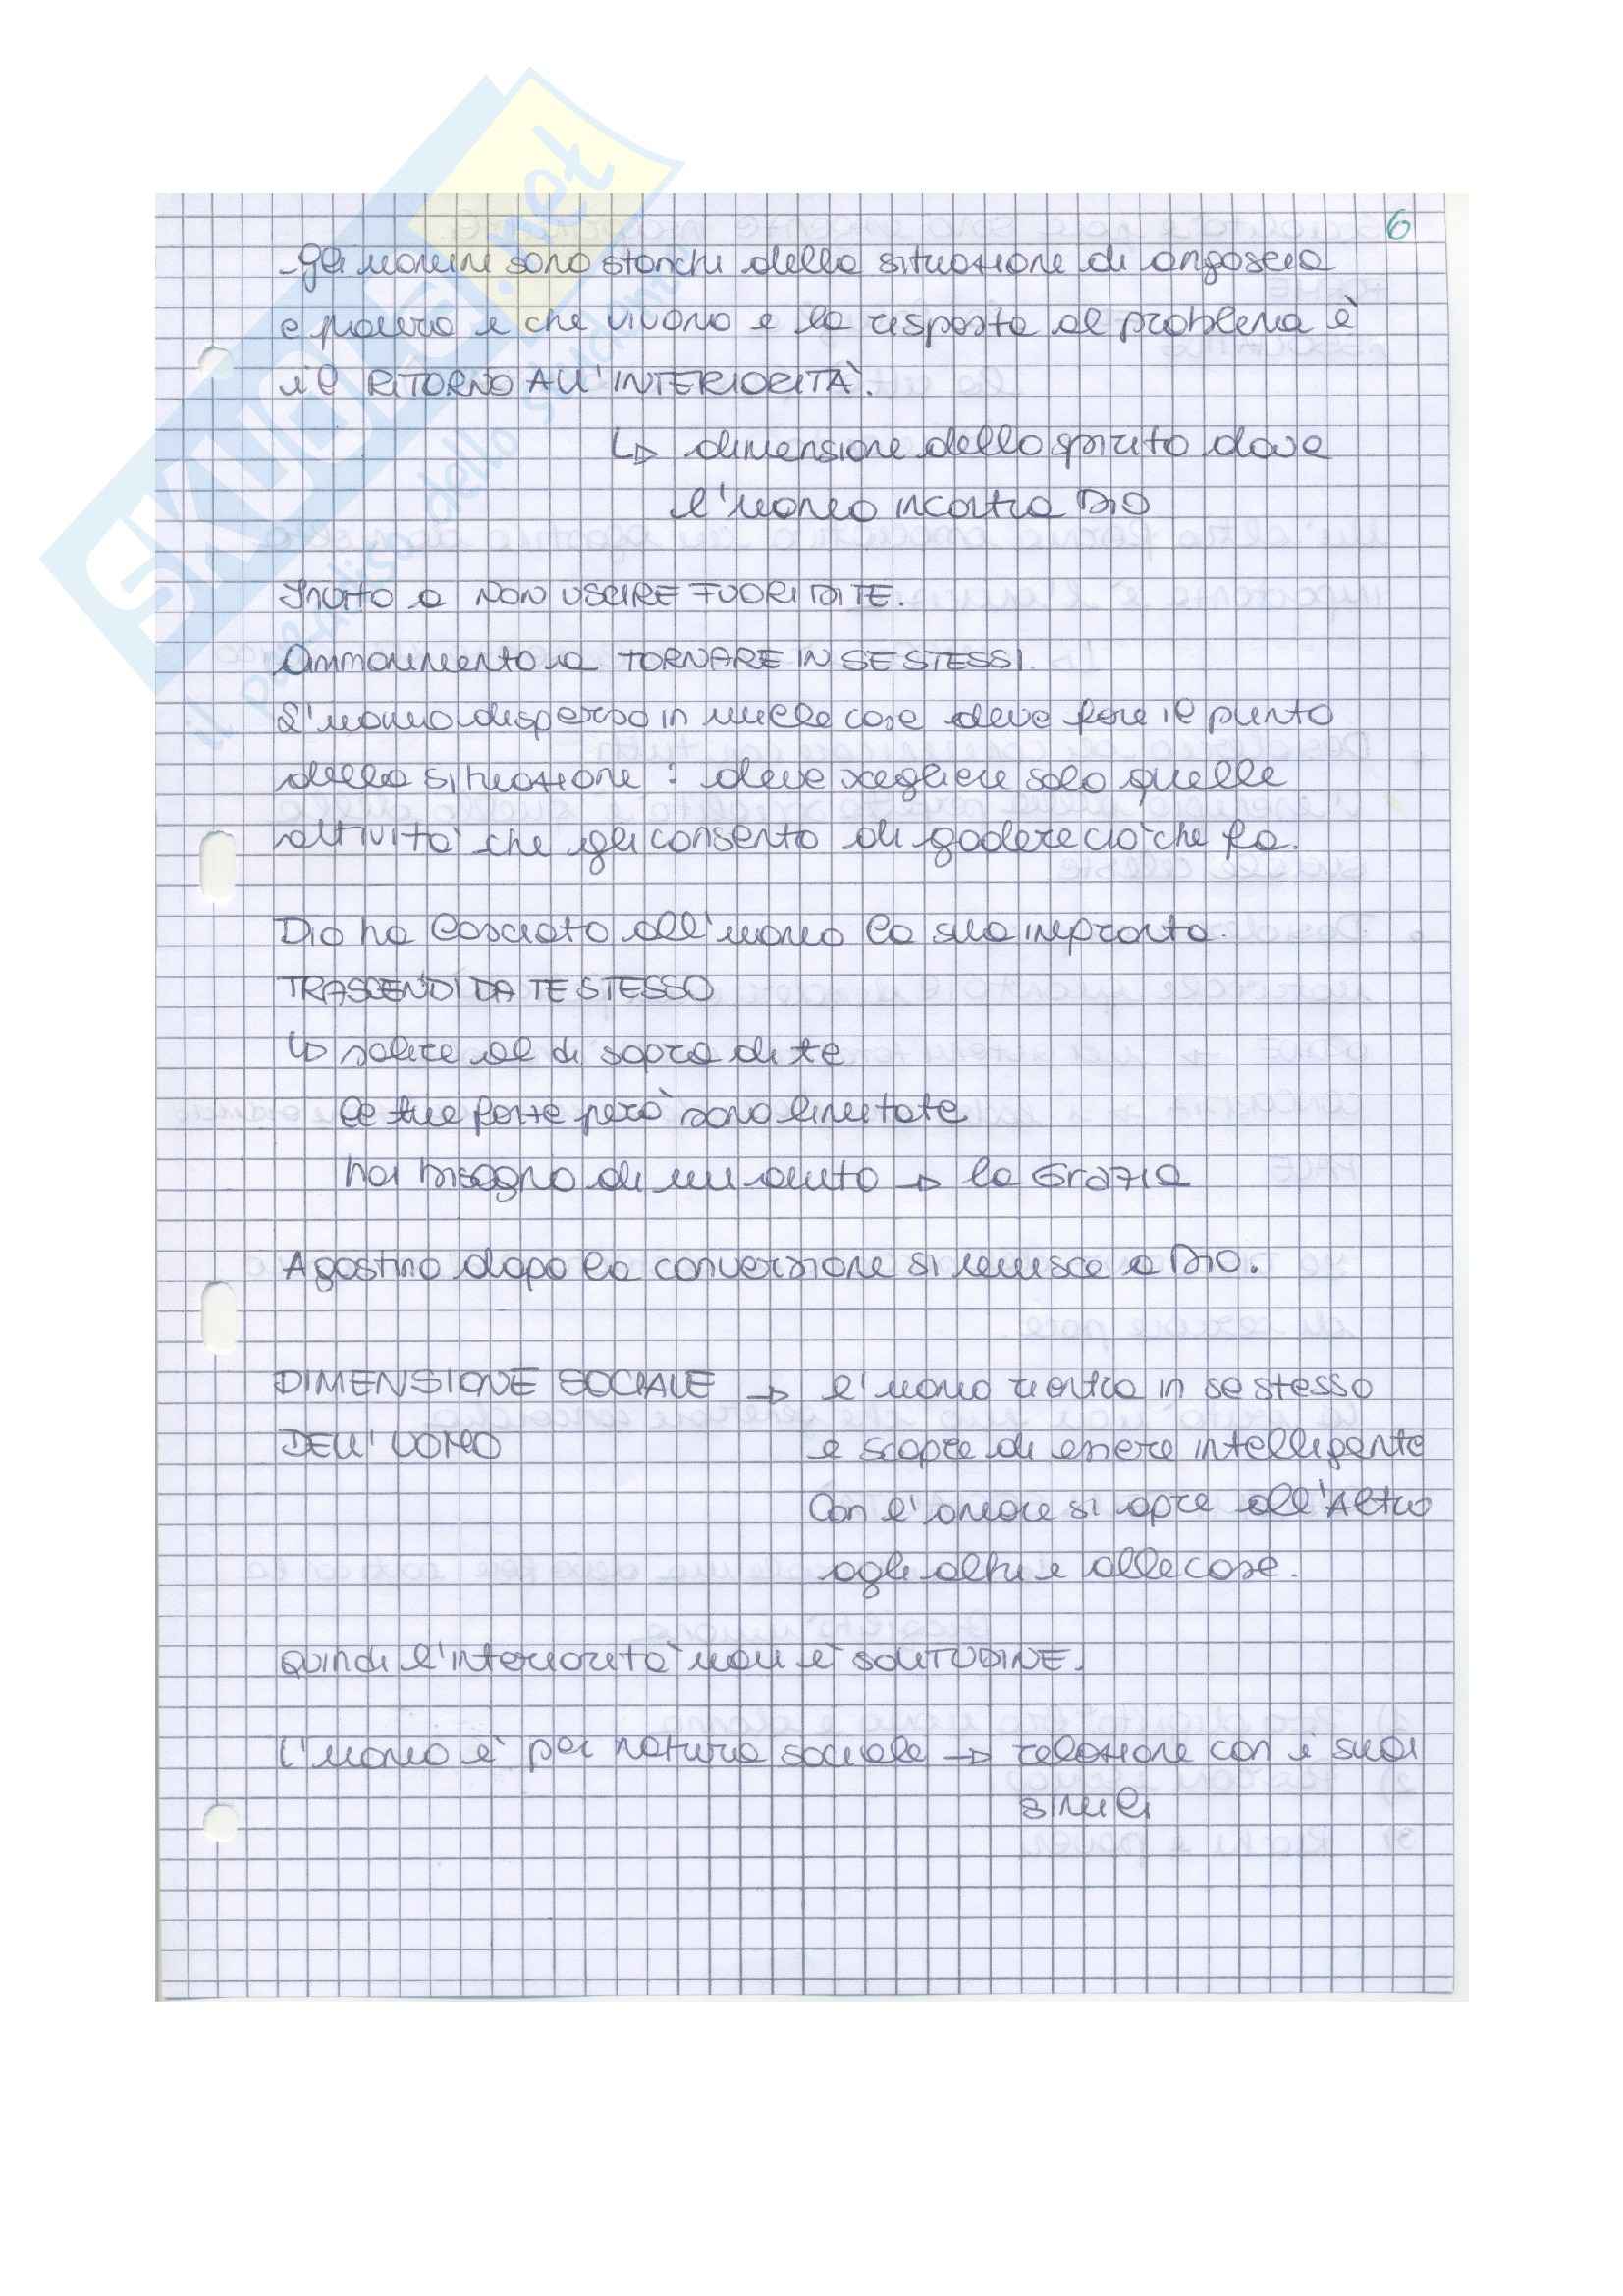 6
-Gli uomini sono stanchi della situazione di angoscia
e paura e che vivono e la risposta al problema è
il RITORNO ALL'INTERIORITÀ.
↳ dimensione dello spirito dove
l'uomo incontra DIO
Invito a NON USCIRE FUORI DI TE.
Ammonimento a TORNARE IN SE STESSI.
L'uomo disperso in mille cose deve fare il punto
della situazione: deve scegliere solo quelle
attività che gli consento di godere ciò che fa.
Dio ha lasciato all'uomo la sua impronta.
TRASCENDI DA TE STESSO
↳ salire al di sopra di te
le tue forze però sono limitate
hai bisogno di un aiuto → la Grazia
Agostino dopo la conversione si unisce a DIO.
DIMENSIONE SOCIALE → l'uomo rientra in se stesso
DELL'UOMO e scopre di essere intelligente
Con l'amore si apre all'Altro
agli altri e alle cose.
Quindi l'interiorità non è SOLITUDINE.
L'uomo è per natura sociale → relazione con i suoi
simili
SKUOLA.net
il paradiso dello studente